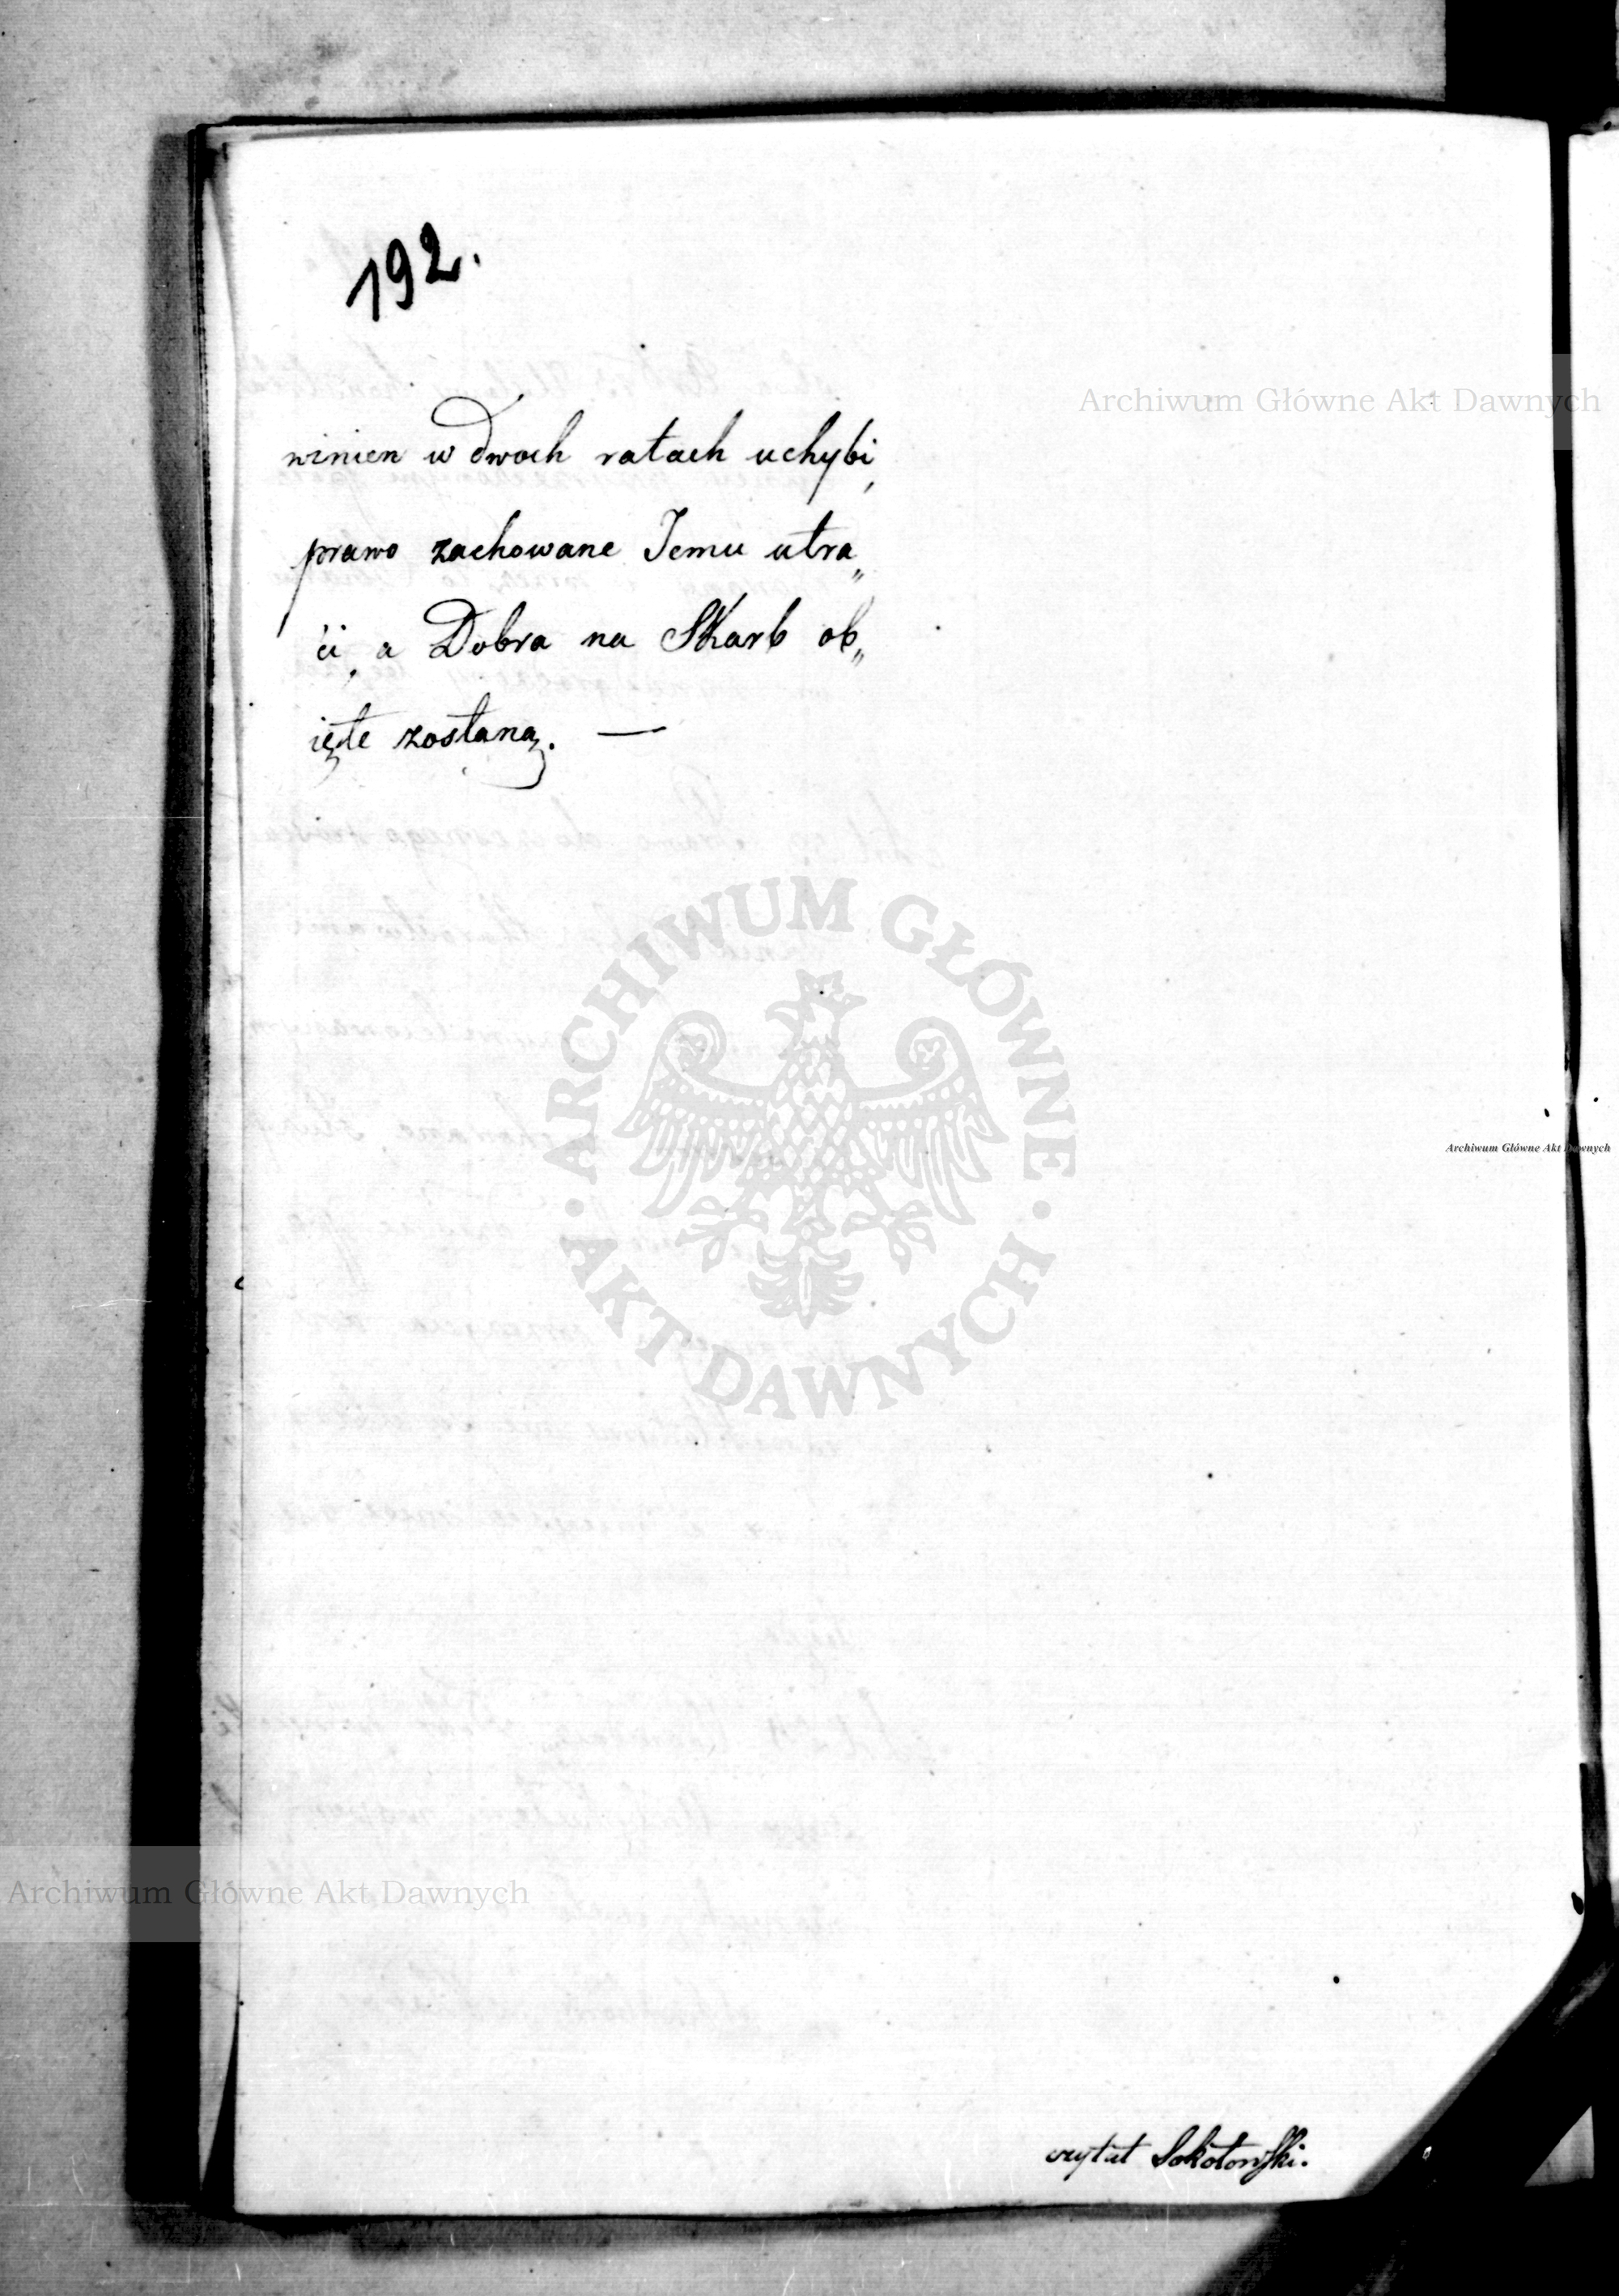 192.
Archiwum Główne Akt Dawnych
winien w dwoch ratach uchybi,
prawo zachowane Jemu utra„
ci, a Dobra na Skarb ob„
ięte zostaną. —
ARCHIWUM GŁÓWNE
· AKT DAWNYCH ·
Archiwum Główne Akt Dawnych
Archiwum Główne Akt Dawnych
czytał Sokołowski.